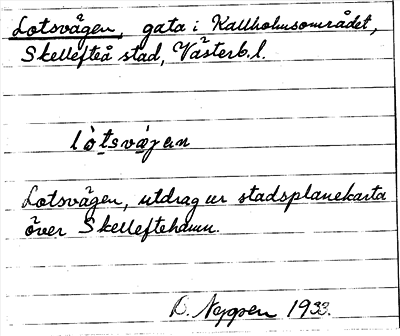 Lotsvägen, gata i Kallholmsområdet,
Skellefteå stad, Västerb.l.
lòtsvä́gan
Lotsvägen, utdrag ur stadsplanekarta
över Skelleftehamn.
1933.